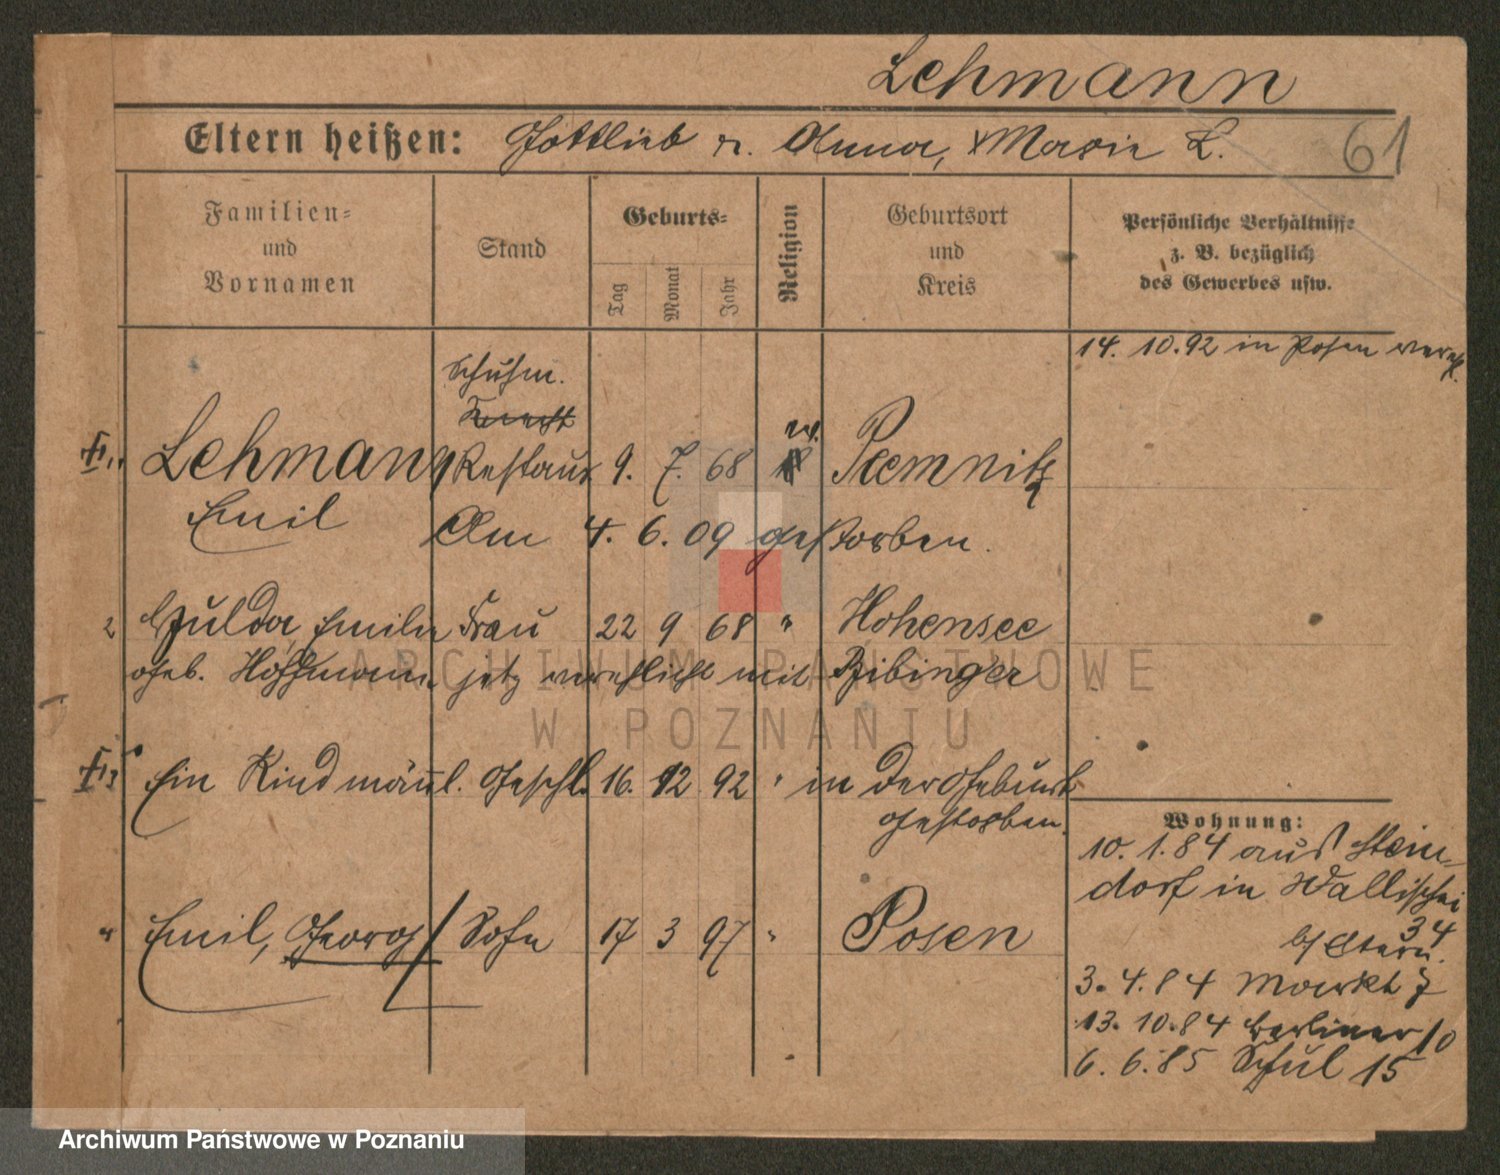 Lehmann
Eltern heißen: Gottlieb u. Anna, Marie L.
61
Familien= und Vornamen
Stand
Geburts=
Tag
Monat
Jahr
Religion
Geburtsort und Kreis
Persönliche Verhältnisse z. B. bezüglich des Gewerbes usw.
14. 10. 92 in Posen vereh.
Schuhm.
Knecht
1. Lehmann Restaur 9. 7. 68 ev. Premnitz
Emil Am 4. 6. 09 gestorben.
2 Hulda, Emilie Frau 22 9 68 " Hohensee
geb. Hoffmann jetz verehlicht mit Bibinger
3 Ein Kind mänl. Geschl. 16. 12 92 " in der Geburt
gestorben.
4 Emil, Georg Sohn 17 3 97 " Posen
Wohnung:
10. 1. 84 aus Stein-
dorf in Wallischei
34
b/ Eltern.
3. 4. 84 Markt 7
13. 10. 84 Berliner 10
6. 6. 85 Schul 15
ARCHIWUM PAŃSTWOWE
W POZNANIU
Archiwum Państwowe w Poznaniu